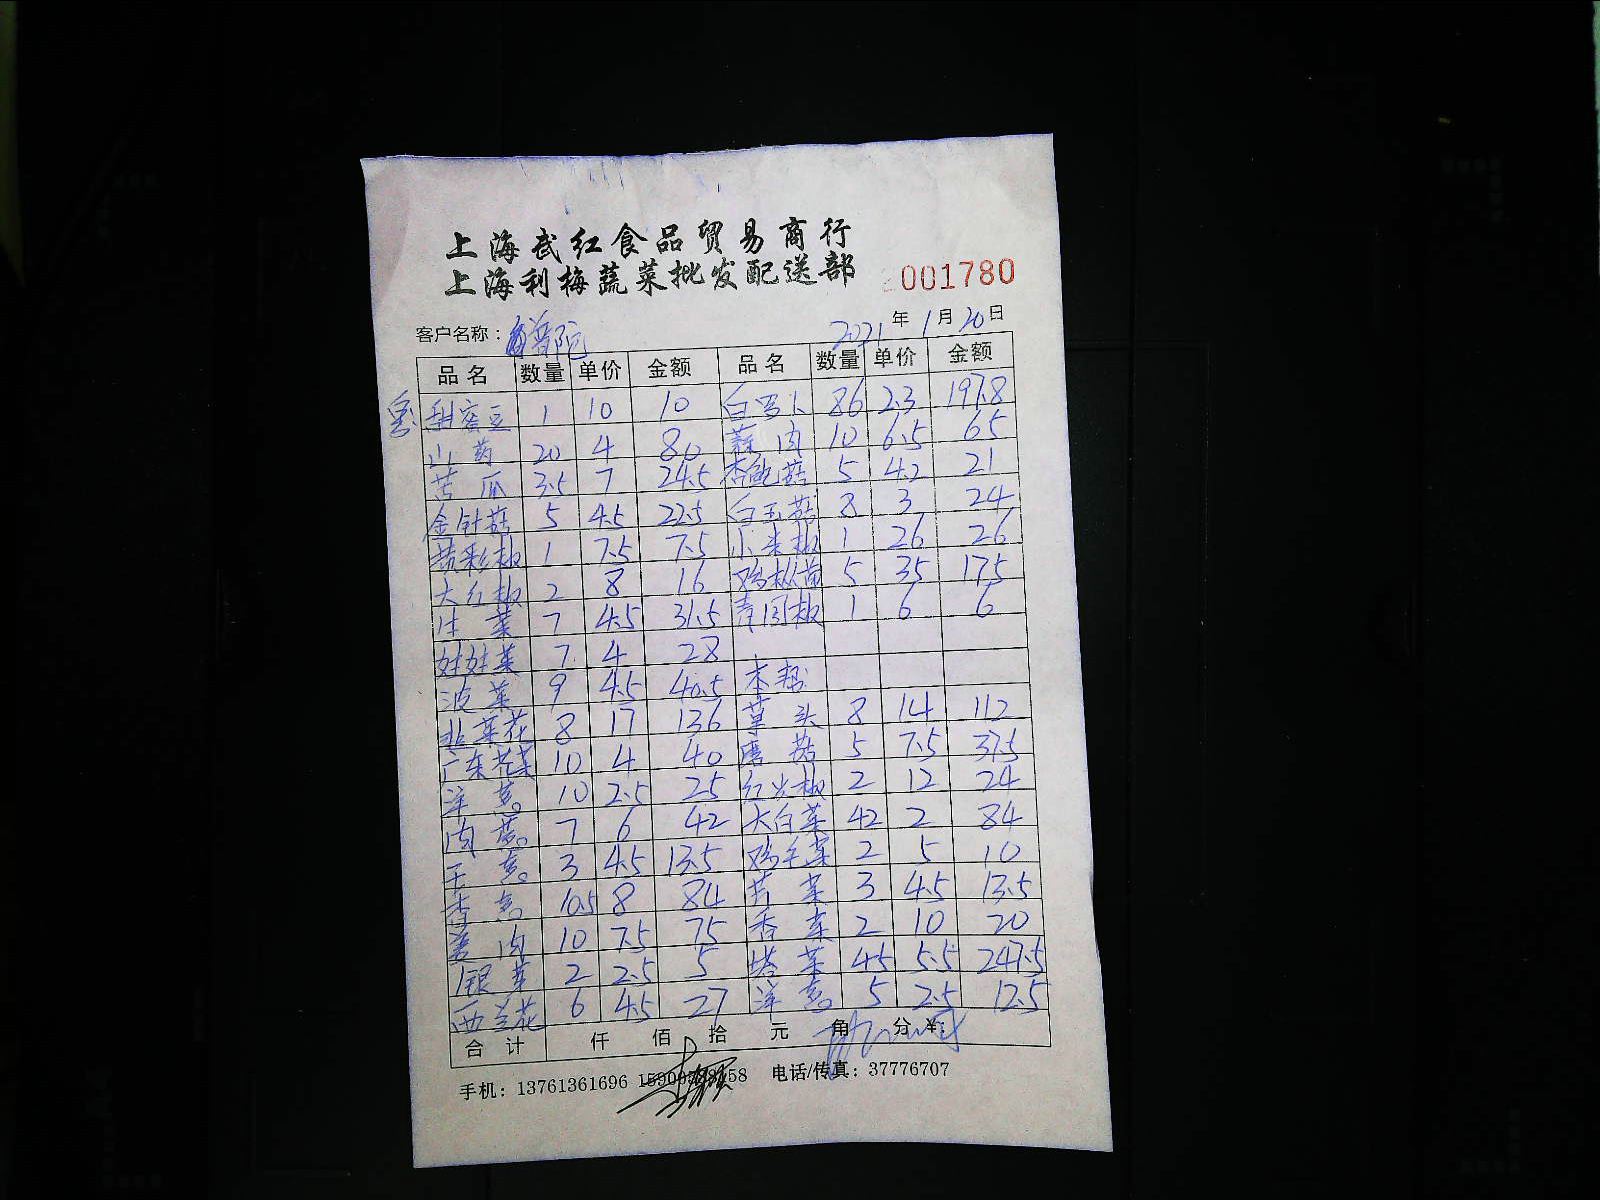 上海武红食品贸易商行
上海利梅蔬菜批发配送部 001780
客户名称： 普陀 2021年1月20日
品名 数量 单价 金额 品名 数量 单价 金额
甜蜜豆 1 10 10 白罗卜 86 2.3 197.8
山药 20 4 80 蒜肉 10 6.5 65
苦瓜 3.5 7 24.5 杏鲍菇 5 4.2 21
金针菇 5 4.5 22.5 白玉菇 8 3 24
黄彩椒 1 7.5 7.5 小米椒 1 26 26
大红椒 2 8 16 鸡枞菌 5 35 175
生菜 7 4.5 31.5 青园椒 1 6 6
娃娃菜 7 4 28
波菜 9 4.5 40.5 本帮
韭菜花 8 17 136 草头 8 14 112
广东花菜 10 4 40 磨菇 5 7.5 37.5
洋葱 10 2.5 25 红尖椒 2 12 24
肉葱 7 6 42 大白菜 42 2 84
3 4.5 13.5 鸡毛菜 2 5 10
香葱 10.5 8 84 芹菜 3 4.5 13.5
姜肉 10 7.5 75 香菜 2 10 20
银芽 2 2.5 5 塔菜 45 5.5 247.5
西兰花 6 4.5 27 洋葱 5 2.5 12.5
合计 仟 佰 拾 元 角 分 ¥:
手机：13761361696 电话/传真：37776707